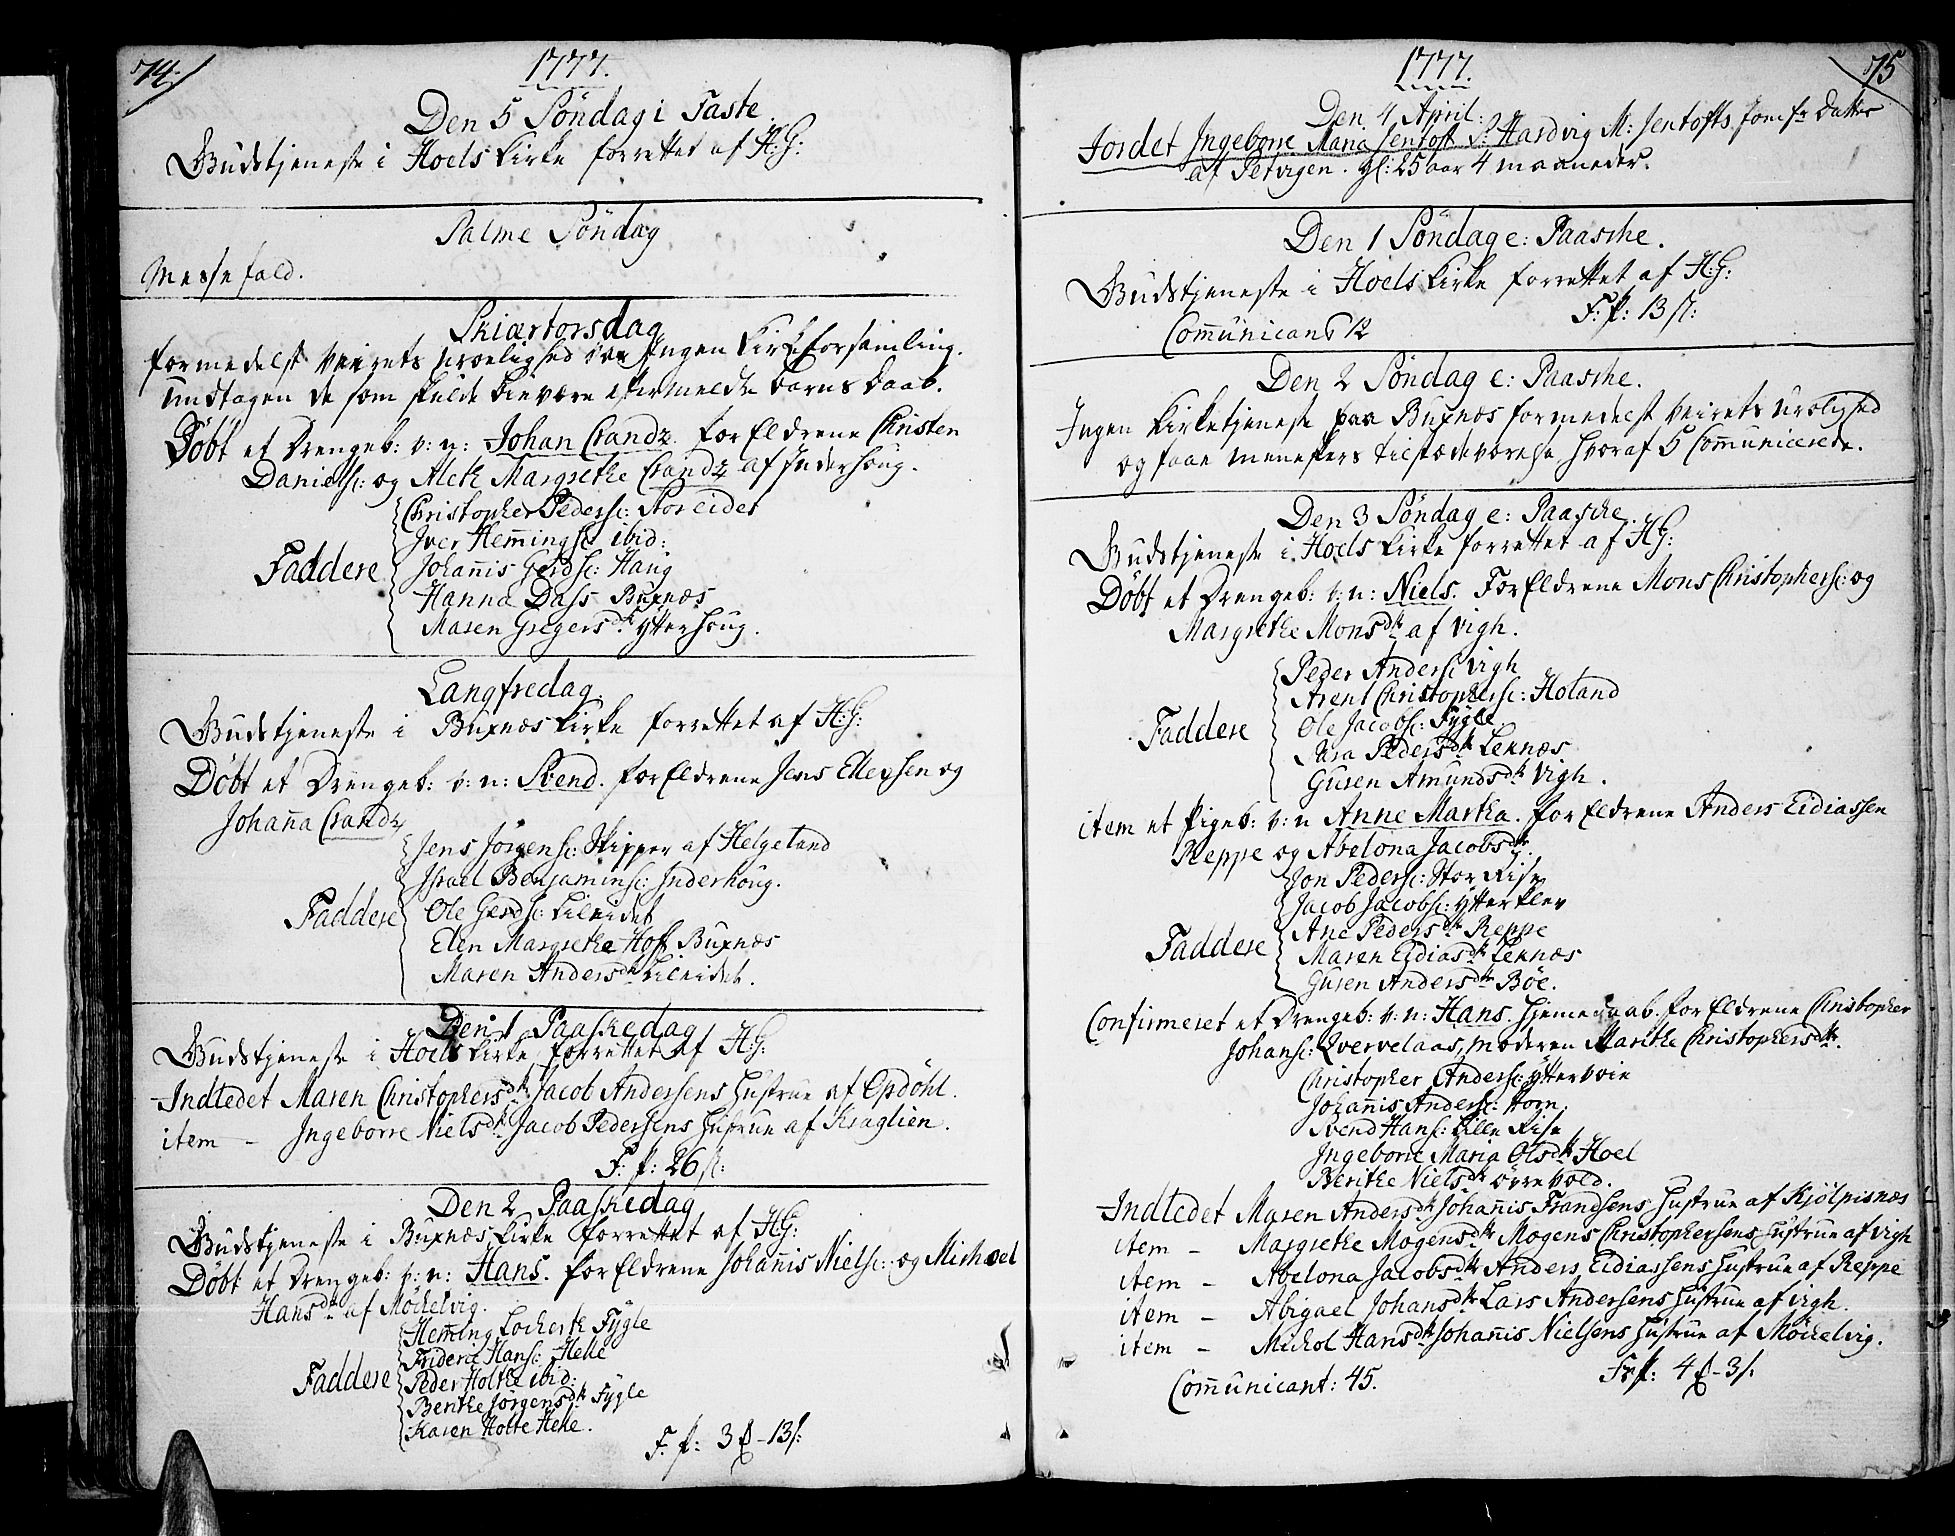 74.
1777.
Den 5 Söndag i Faste.
Gudstjeneste i Hoels Kirke forrettet af H: G:
Palme Söndag
Messefald.
Skiærtorsdag
formedelst Veirets urolighed var Ingen Kirkeforsamling.
undtagen de som skulde bievære eftermeldte barns daab.
Döbt et Drengeb: v: n: Johan Crandz. forEldrene Christen
Daniels: og Aleth Margrethe Crandz af Inderhoug.
Faddere
Christopher Peders: Storeidet
Iver Hemings: ibid:
Johannis Gerds: Haug
Hanna Dass Buxnæs
Maren Gregersdtr Ytterhoug.
Langfredag.
Gudstjeneste i Buxnæs Kirke forrettet af H: G:
Döbt et Drengeb: v: n: Svend. forEldrene Jens Ellevsen og
Johanna Crandz
Faddere
Jens Jörgens: Skipper af Helgeland
Israel Benjamins: Inderhoug.
Ole Gerds: Lileidet
Elen Margrethe Hoff Buxnæs
Maren Andersdtr Lileidet.
Den 1 Paaskedag
Gudstjeneste i Hoels Kirke forrettet af H: G:
Indledet Maren Christophersdtr Jacob Andersens Hustrue af Opdöhl.
item – Ingeborre Nielsdtr Jacob Pedersens Hustrue af Kraglien.
F: p: 26 s:
Den 2 Paaskedag
Gudstjeneste i Buxnæs Kirke forrettet af H: G:
Döbt et Drengeb: v: n: Hans. forEldrene Johannis Niels: og Michael
Hansdtr af Möckelvig.
Faddere
Hemming Lockerth Fygle
Frideric Hans: Helle
Peder Holthe ibid:
Benthe Jörgensdtr Fygle
Karen Holte Helle.
F: p: 3 – 13 s:
75
1777.
Den 4 April:
Jordet Ingeborre Maria Jentoft S: Hardvig M: Jentofts Jomfr Datter
af Petvigen. gl: 25 aar 4 maaneder.
Den 1 Söndag e: Paasche.
Gudstjeneste i Hoels Kirke forrettet af H: G:
Communicant 12
F: p: 13 s:
Den 2 Söndag e: Paasche.
Ingen Kirketjeneste paa Buxnæs formedelst Veirets urolighed
og faae Meneskers tilstædeværelse hvoraf 5 Communicerede.
Den 3 Söndag e: Paasche.
Gudstjeneste i Hoels Kirke forrettet af H: G:
Döbt et Drengeb: v: n: Niels. ForEldrene Mons Christophers: og
Margrethe Monsdtr af Vigh.
Faddere
Peder Anders: Vigh
Arent Christophers: Holand
Ole Jacobs: Fygle
Sara Pedersdtr Leknæs
Guren Amundsdtr Vigh.
item et Pigeb: v: n Anne Martha. forEldrene Anders Eidiassen
Reppe og Abelona Jacobsdtr.
Faddere
Jon Peders: Stor Rise
Jacob Jacobs: Ytter Klev
Ane Pedersdtr Reppe
Maren Eidiasdtr Leknæs
Guren Andersdtr Böe.
Confirmeret et Drengeb: v: n: Hans. hjemedaab. forEldrene Christopher
Johans: Qvervelaas, moderen Marithe Christophersdtr.
Christopher Anders: Yttervoie
Johannis Anders: Horn
Svend Hans: Lille Rise
Ingeborre Maria Olsdtr Hoel
Berithe Nielsdtr örrevold.
Indledet Maren Andersdtr Johannis Frandsens Hustrue af Kjölpisnæs
item – Margrethe Mogensdtr Mogens Christophersens Hustrue af Vigh
item – Abelona Jacobsdtr Anders Eidiassens Hustrue af Reppe
item – Abigael Johansdtr Lars Andersens Hustrue af Vigh.
item – Michol Hansdtr Johannis Nielsens Hustrue af Möckelvig.
Communicant: 45.
F: p: 4 – 3 s.